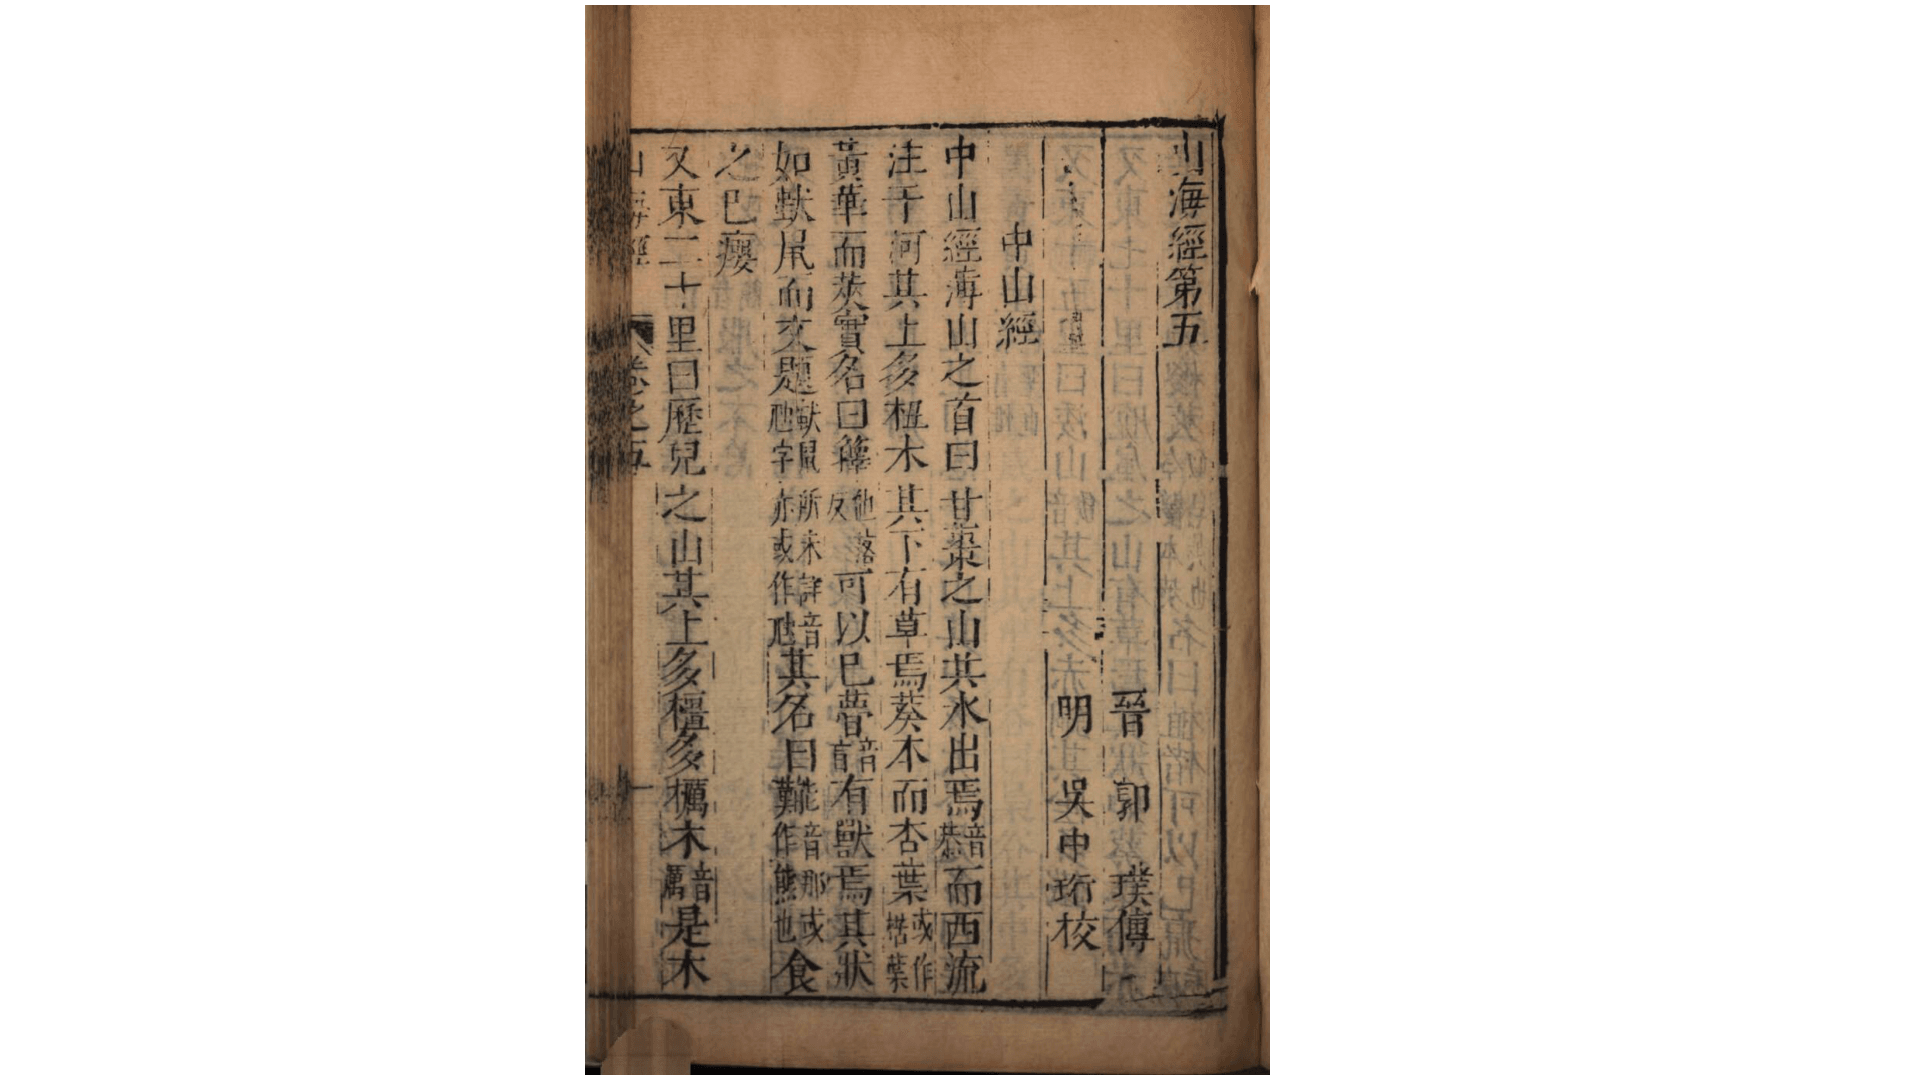 山海經第五
晉　郭　璞傳
明　吳中珩校
中山經
中山經薄山之首曰甘棗之山共水出焉音恭而西流
注于河其上多杻木其下有草焉葵本而杏葉或作楛葉
黃華而莢實名曰籜他落反可以已瞢音盲有獸焉其狀
如䑕而文題獸䑕所未詳音虺字亦或作虺其名曰㔮能音那或作熊也食
之已癭
又東二十里曰歷兒之山其上多橿多櫔木音厲是木
山海經　卷之五　一